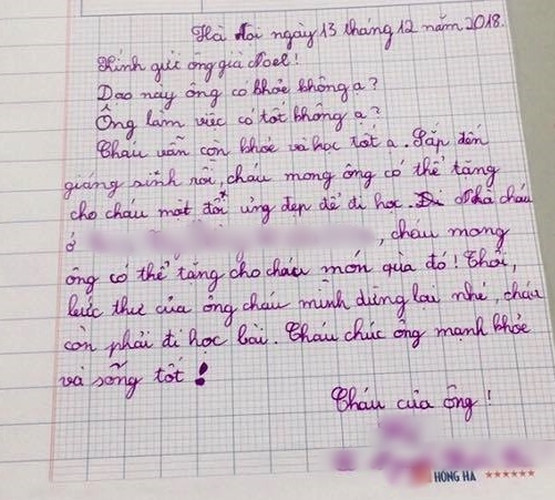 Hà Nôi ngày 13 tháng 12 năm 2018.
Kính gửi ông già Noel!
Dạo này ông có khỏe không ạ?
Ông làm việc có tốt không ạ?
Cháu vẫn còn khỏe và học tốt ạ. Sắp đến
giáng sinh rồi, cháu mong ông có thể tặng
cho cháu một đôi ủng đẹp để đi học. Nhà cháu
ở , cháu mong
ông có thể tặng cho cháu món quà đó! Thôi,
bức thư của ông cháu mình dừng lại nhé, cháu
còn phải đi học bài. Cháu chúc ông mạnh khỏe
và sống tốt!
Cháu của ông!
HỒNG HÀ